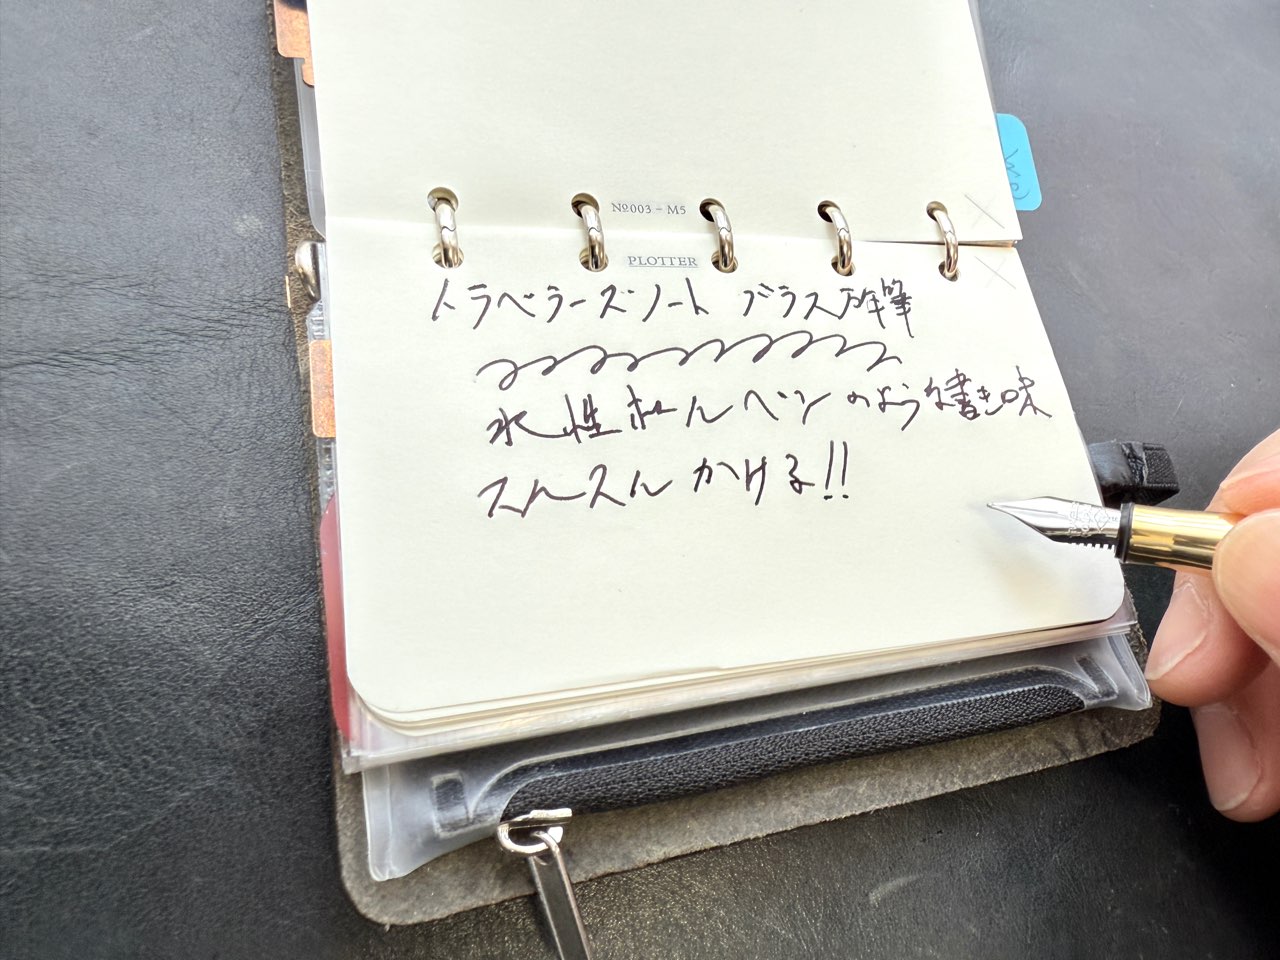 №003 - M5
PLOTTER
トラベラーズノート ブラス万年筆
水性ボールペンのような書き味
スルスルかける!!